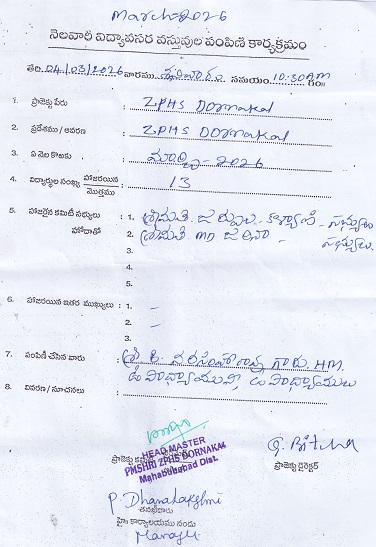 March-2026
నెలవారీ విద్యావసర వస్తువుల పంపిణీ కార్యక్రమం
తేది. 04/03/2026 వారము సమయం 10:30AM గం॥
1. ప్రాజెక్టు పేరు ZPHS Dornakal
2. ప్రదేశము / ఆవరణ ZPHS Dornakal
3. ఏ నెల కొరకు మార్చి-2026
4. విద్యార్థుల సంఖ్య హాజరయిన మొత్తము 13
5. హాజరైన కమిటీ సభ్యులు : 1. శ్రీమతి. - కళ్యాణి - సభ్యులు
హోదాతో 2. శ్రీమతి - సభ్యులు.
3.
4.
5.
6. హాజరయిన ఇతర ముఖ్యులు : 1. –
2. –
3.
7. పంపిణీ చేసిన వారు శ్రీ గారు. HM
ఉపాధ్యాయులు
8. వివరణ / సూచనలు
HEAD MASTER
PMSHRI ZPHS DORNAKAL
Mahabubabad Dist.
ప్రాజెక్టు డైరెక్టర్
P. Dhanalakshmi
హై కార్యాలయము నందు